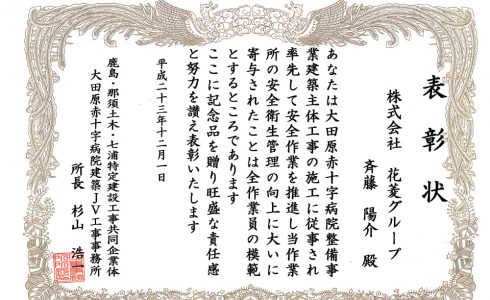 表彰状
株式会社 花菱グループ
斉藤 陽介 殿
あなたは大田原赤十字病院整備事
業建築主体工事の施工に従事され
率先して安全作業を推進し当作業
所の安全衛生管理の向上に大いに
寄与されたことは全作業員の模範
とするところであります
ここに記念品を贈り旺盛な責任感
と努力を讃え表彰いたします
平成二十三年十二月一日
鹿島・那須土木・七浦特定建設工事共同企業体
大田原赤十字病院建築JV工事事務所
所長 杉山 浩一